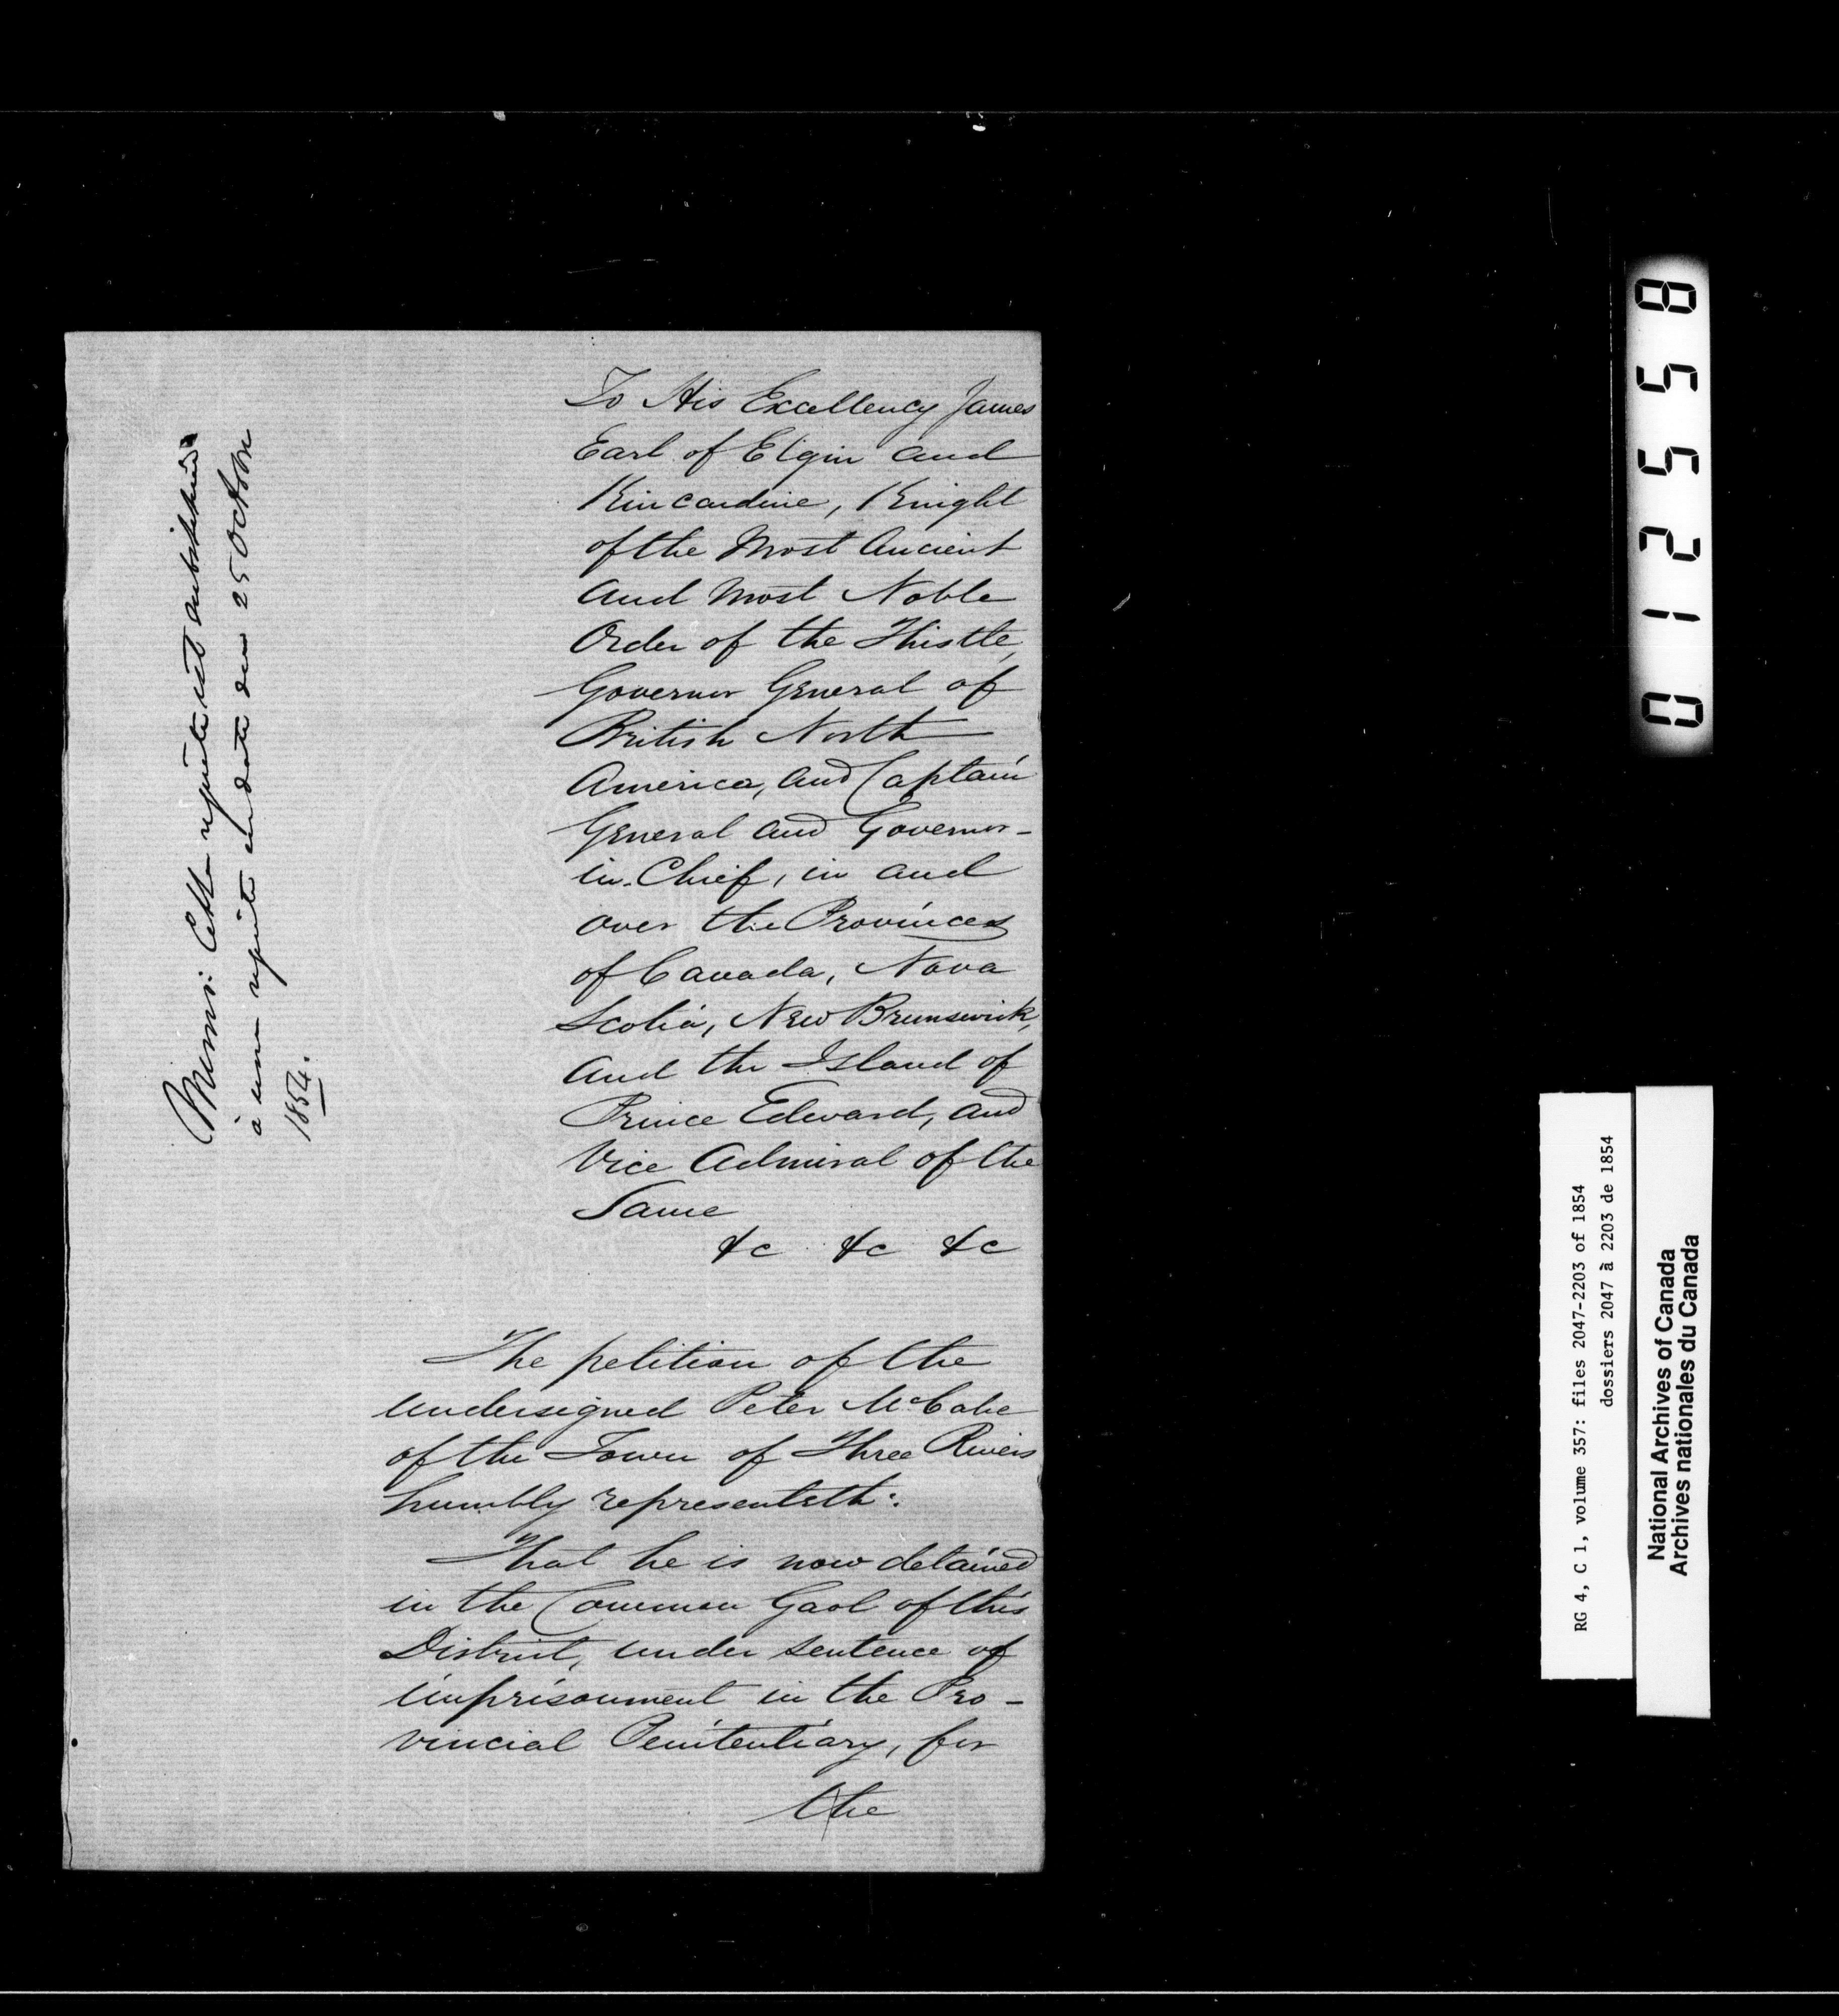 To His Excellency James
Earl of Elgin and
Kincardine, Knight
of the Most Ancient
and Most Noble
Order of the Thistle,
Governor General of
British North
America, and Captain
General and Governor-
in-Chief, in and
over the Provinces
of Canada, Nova
Scotia, New Brunswick,
and the Island of
Prince Edward, and
Vice Admiral of the
Same
&c &c &c
The petition of the
undersigned Peter McCabe
of the Town of Three Rivers
humbly representeth:
That he is now detained
in the Common Gaol of this
District, under sentence of
imprisonment in the Pro-
vincial Penitentiary, for
the
Memo: Cette requête est
à une requête en date du 25 Octobre
1854.
012558
RG 4, C 1, volume 357: files 2047-2203 of 1854
dossiers 2047 à 2203 de 1854
National Archives of Canada
Archives nationales du Canada